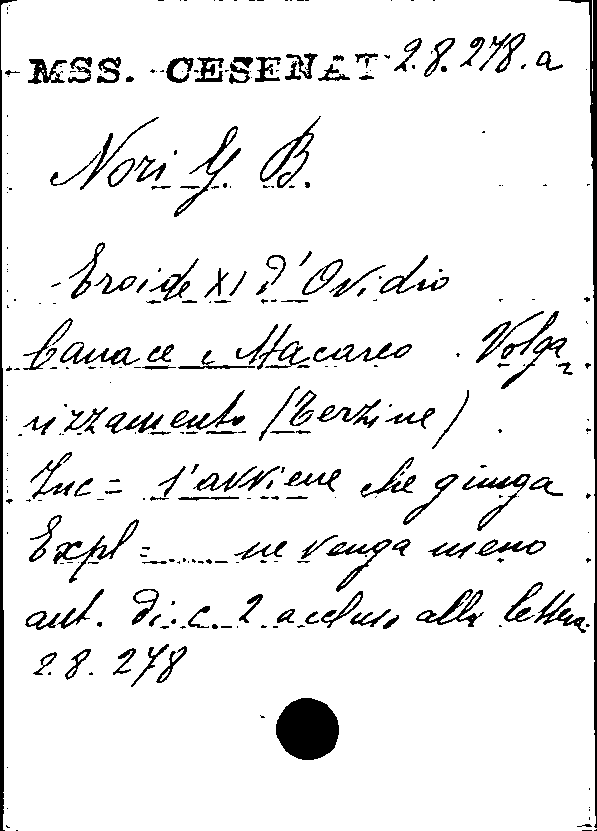 MSS. CESENAT 2.8.278.a
Nori G. B.
Eroide XI d'Ovidio
Canace e Macareo. Volga
rizzamento (Terzine)
Inc = s'avviene che giunga
Expl = ..... ne venga meno
aut. di c. 2 accluso alla lettera
2.8. 278